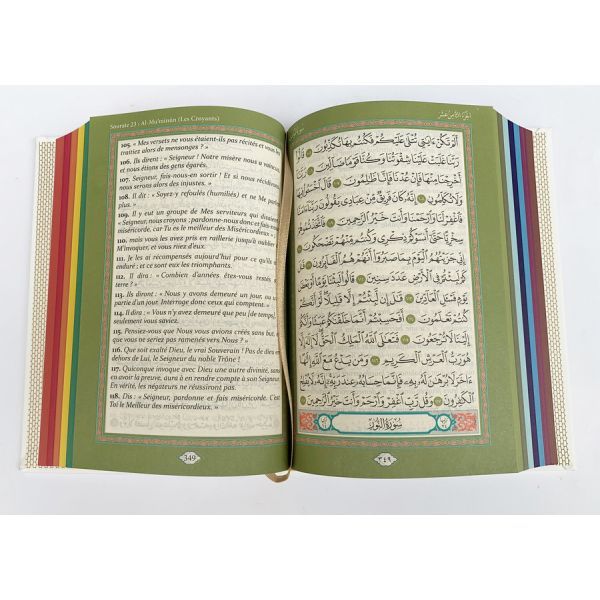 Sourate 23 : Al-Mu'minûn (Les Croyants)
105. « Mes versets ne vous étaient-ils pas récités et vous les
traitiez alors de mensonges ? »
106. Ils dirent : « Seigneur ! Notre misère nous a vaincus
et nous étions des gens égarés.
107. Seigneur, fais-nous-en sortir ! Et si nous récidivons
nous serons alors des injustes. »
108. Il dit : « Soyez-y refoulés (humiliés) et ne Me parlez
plus. »
109. Il y eut un groupe de Mes serviteurs qui dirent
« Seigneur, nous croyons ; pardonne-nous donc et fais-nous
miséricorde, car Tu es le meilleur des Miséricordieux »
110. mais vous les avez pris en raillerie jusqu'à oublier de
M'invoquer, et vous riiez d'eux.
111. Je les ai récompensés aujourd'hui pour ce qu'ils ont
enduré ; et ce sont eux les triomphants.
112. Il dira : « Combien d'années êtes-vous restés sur
terre ? »
113. Ils diront : « Nous y avons demeuré un jour, ou une
partie d'un jour. Interroge donc ceux qui comptent. »
114. Il dira : « Vous n'y avez demeuré que peu [de temps], si
seulement vous saviez.
115. Pensiez-vous que Nous vous avions créés sans but, et
que vous ne seriez pas ramenés vers Nous ? »
116. Que soit exalté Dieu, le vrai Souverain ! Pas de dieu en
dehors de Lui, le Seigneur du noble Trône !
117. Quiconque invoque avec Dieu une autre divinité, sans
en avoir la preuve, aura à en rendre compte à son Seigneur.
En vérité, les négateurs ne réussiront pas.
118. Dis : « Seigneur, pardonne et fais miséricorde. C'est
Toi le Meilleur des miséricordieux. »
349
الجزء الثامن عشر
أَلَمْ تَكُنْ ءَايَٰتِى تُتْلَىٰ عَلَيْكُمْ فَكُنتُم بِهَا تُكَذِّبُونَ ١٠٥ قَالُوا۟
رَبَّنَا غَلَبَتْ عَلَيْنَا شِقْوَتُنَا وَكُنَّا قَوْمًا ضَآلِّينَ ١٠٦ رَبَّنَآ
أَخْرِجْنَا مِنْهَا فَإِنْ عُدْنَا فَإِنَّا ظَٰلِمُونَ ١٠٧ قَالَ ٱخْسَـُٔوا۟ فِيهَا
وَلَا تُكَلِّمُونِ ١٠٨ إِنَّهُۥ كَانَ فَرِيقٌ مِّنْ عِبَادِى يَقُولُونَ رَبَّنَآ ءَامَنَّا
فَٱغْفِرْ لَنَا وَٱرْحَمْنَا وَأَنتَ خَيْرُ ٱلرَّٰحِمِينَ ١٠٩ فَٱتَّخَذْتُمُوهُمْ
سِخْرِيًّا حَتَّىٰٓ أَنسَوْكُمْ ذِكْرِى وَكُنتُم مِّنْهُمْ تَضْحَكُونَ ١١٠
إِنِّى جَزَيْتُهُمُ ٱلْيَوْمَ بِمَا صَبَرُوٓا۟ أَنَّهُمْ هُمُ ٱلْفَآئِزُونَ ١١١ قَٰلَ
كَمْ لَبِثْتُمْ فِى ٱلْأَرْضِ عَدَدَ سِنِينَ ١١٢ قَالُوا۟ لَبِثْنَا يَوْمًا أَوْ بَعْضَ
يَوْمٍ فَسْـَٔلِ ٱلْعَآدِّينَ ١١٣ قَٰلَ إِن لَّبِثْتُمْ إِلَّا قَلِيلًا لَّوْ أَنَّكُمْ
كُنتُمْ تَعْلَمُونَ ١١٤ أَفَحَسِبْتُمْ أَنَّمَا خَلَقْنَٰكُمْ عَبَثًا وَأَنَّكُمْ
إِلَيْنَا لَا تُرْجَعُونَ ١١٥ فَتَعَٰلَى ٱللَّهُ ٱلْمَلِكُ ٱلْحَقُّ لَآ إِلَٰهَ إِلَّا
هُوَ رَبُّ ٱلْعَرْشِ ٱلْكَرِيمِ ١١٦ وَمَن يَدْعُ مَعَ ٱللَّهِ إِلَٰهًا
ءَاخَرَ لَا بُرْهَٰنَ لَهُۥ بِهِۦ فَإِنَّمَا حِسَابُهُۥ عِندَ رَبِّهِۦٓ إِنَّهُۥ لَا يُفْلِحُ
ٱلْكَٰفِرُونَ ١١٧ وَقُل رَّبِّ ٱغْفِرْ وَٱرْحَمْ وَأَنتَ خَيْرُ ٱلرَّٰحِمِينَ ١١٨
سُورَةُ النُّورِ
٣٤٩